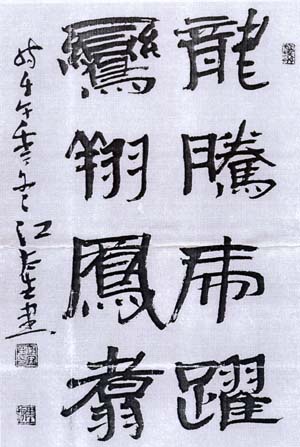 龍騰虎躍
鸞翔鳳翥
时壬午江書